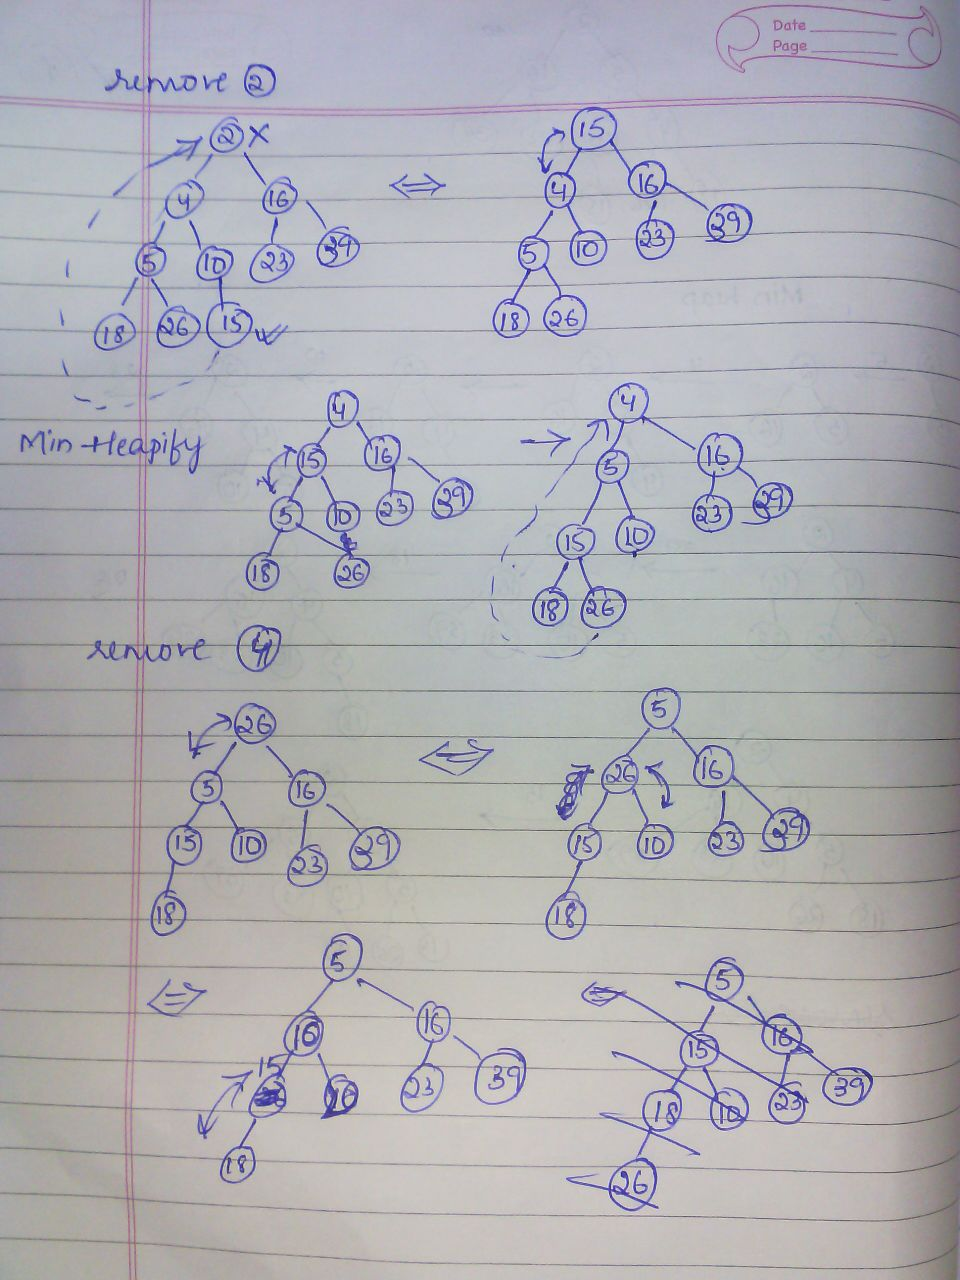 Date
Page
remove 2
2 X
4 16
5 10 23 39
18 26 15
15
4 16
5 10 23 39
18 26
Min Heapify
4
15 16
5 10 23 39
18 26
4
5 16
15 10 23 39
18 26
remove 4
26
5 16
15 10 23 39
18
5
26 16
15 10 23 39
18
5
10 16
15 23 39
18
5
15 16
18 10 23 39
26